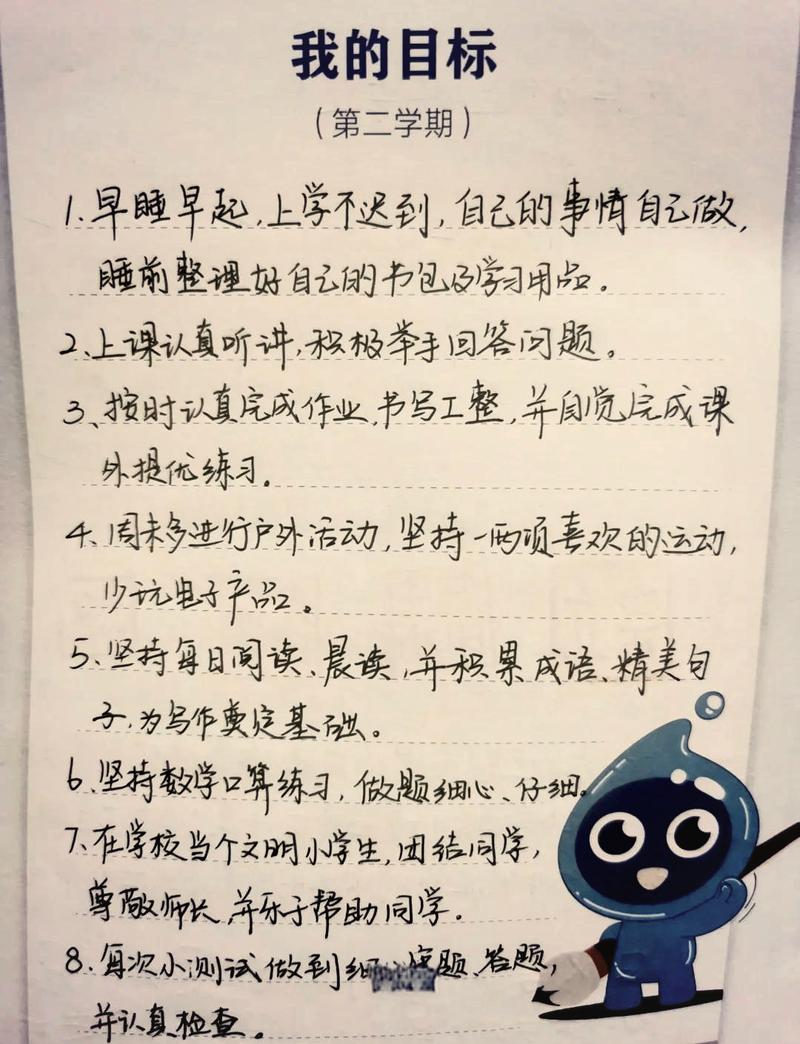 我的目标
（第二学期）
1.早睡早起,上学不迟到,自己的事情自己做,
睡前整理好自己的书包及学习用品。
2、上课认真听讲,积极举手回答问题。
3、按时认真完成作业,书写工整,并自觉完成课
外提优练习。
4、周末多进行户外活动,坚持一两项喜欢的运动,
少玩电子产品。
5、坚持每日阅读、晨读,并积累成语、精美句
子,为写作奠定基础。
6、坚持数学口算练习,做题细心、仔细。
7、在学校当个文明小学生,团结同学,
尊敬师长,并乐于帮助同学。
8.每次小测试做到细心审题、答题,
并认真检查。